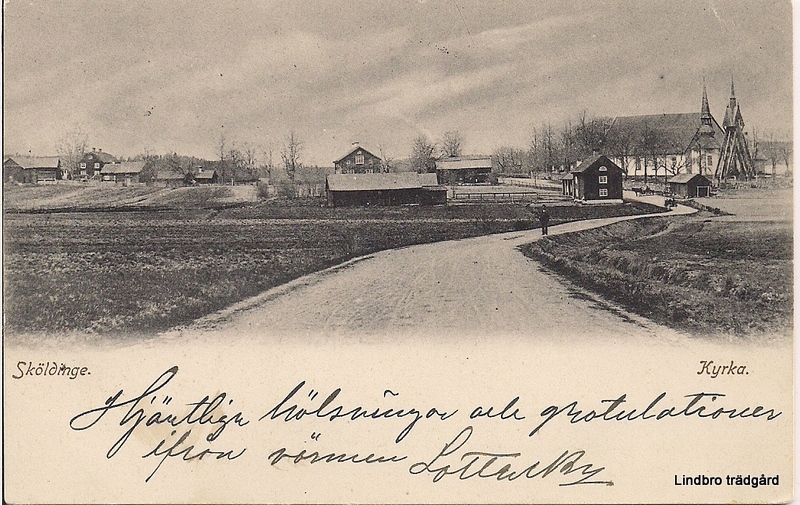 Sköldinge.
Kyrka.
Hjäntlign hölsningar och gratulationer
ifrån vörmen
Lindbro trädgård